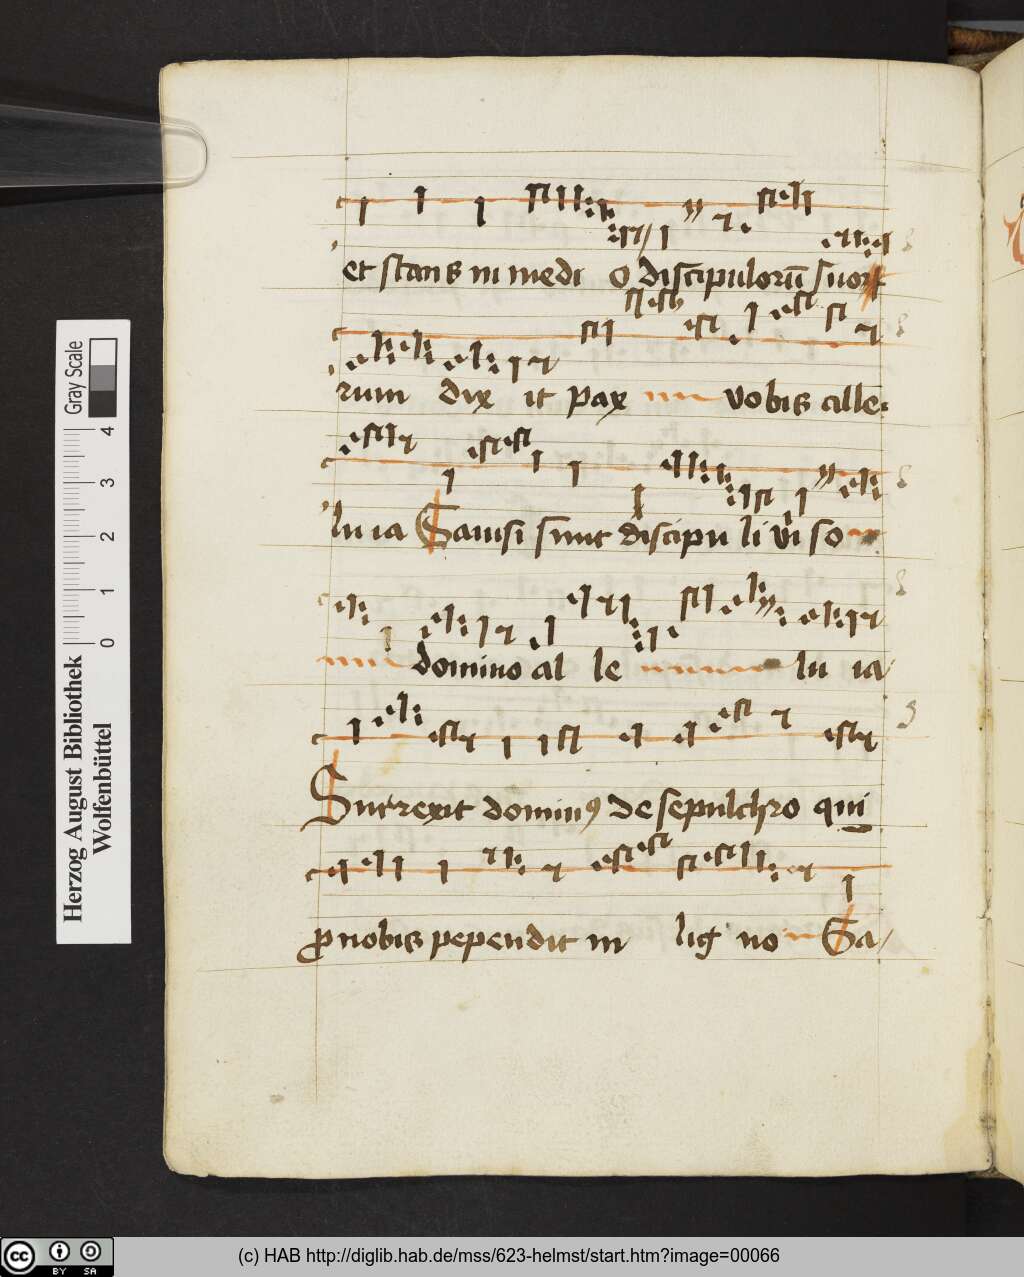 et stans in medi o discipuloru̅ suor
rum dix it pax vobis alle
lu ia Gauisi sunt discipu li vi so
domino al le lu ia
Surrexit dominꝰ de sepulchro qui
ꝓ nobis pependit in lig no Ga
Gray Scale
0 1 2 3 4
Herzog August Bibliothek
Wolfenbüttel
cc BY SA
(c) HAB http://diglib.hab.de/mss/623-helmst/start.htm?image=00066